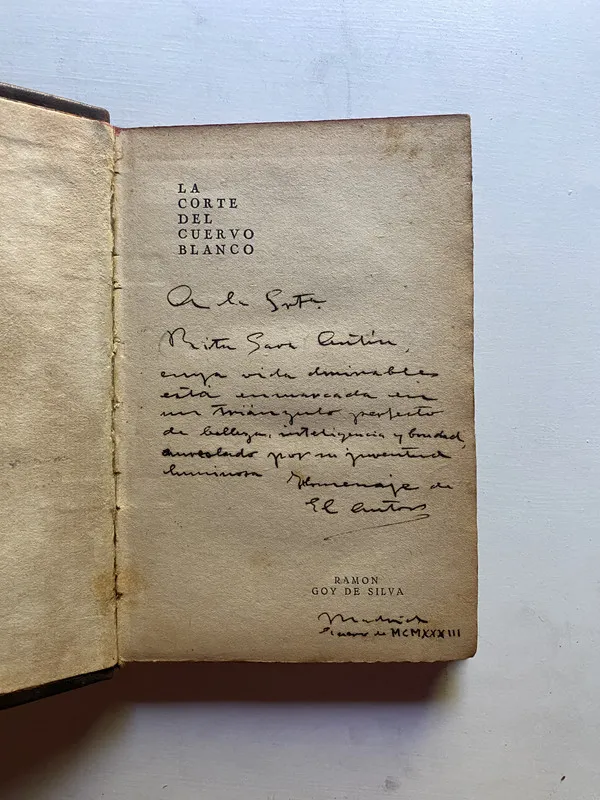 LA
CORTE
DEL
CUERVO
BLANCO
A la Srta.
Rita Sara Antín,
cuya vida admirable
está enmarcada en
un triángulo perfecto
de belleza, inteligencia y bondad,
aureolado por su juventud
luminosa Homenaje de
El Autor
RAMON
GOY DE SILVA
Madrid
enero de MCMXXXIII